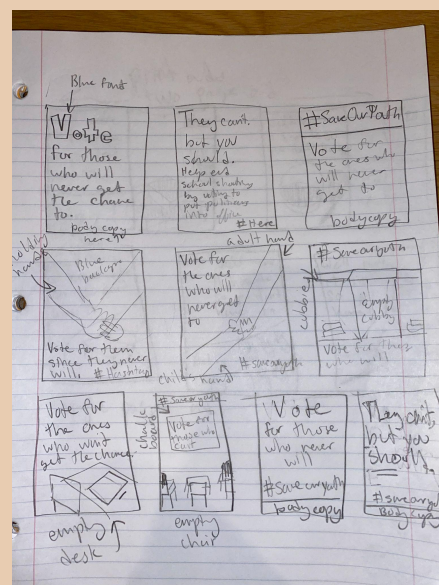 Blue font
Vote
for those
who will
never get
the chance
to.
body copy
here
They can't.
but you
should.
Help end
school shooting
by voting to
put
into office
#Here
#SaveOurYouth
Vote for
the ones who
will never
get to
bodycopy
holding
hands
Blue
Vote for them
since they never
will. #Hashtag
adult hand
Vote for
the ones
who will
never get
to
#saveouryouth
child's hand
#saveouryouth
cubbies
empty
cubby
Vote for
who will
Vote for
the ones
who wont
get the chance.
empty
desk
#saveouryouth
chalk
board
Vote for
those who
can't
empty
chair
Vote
for those
who never
will
#saveouryouth
bodycopy
They can't,
but you
should.
#saveouryou
Bodycopy